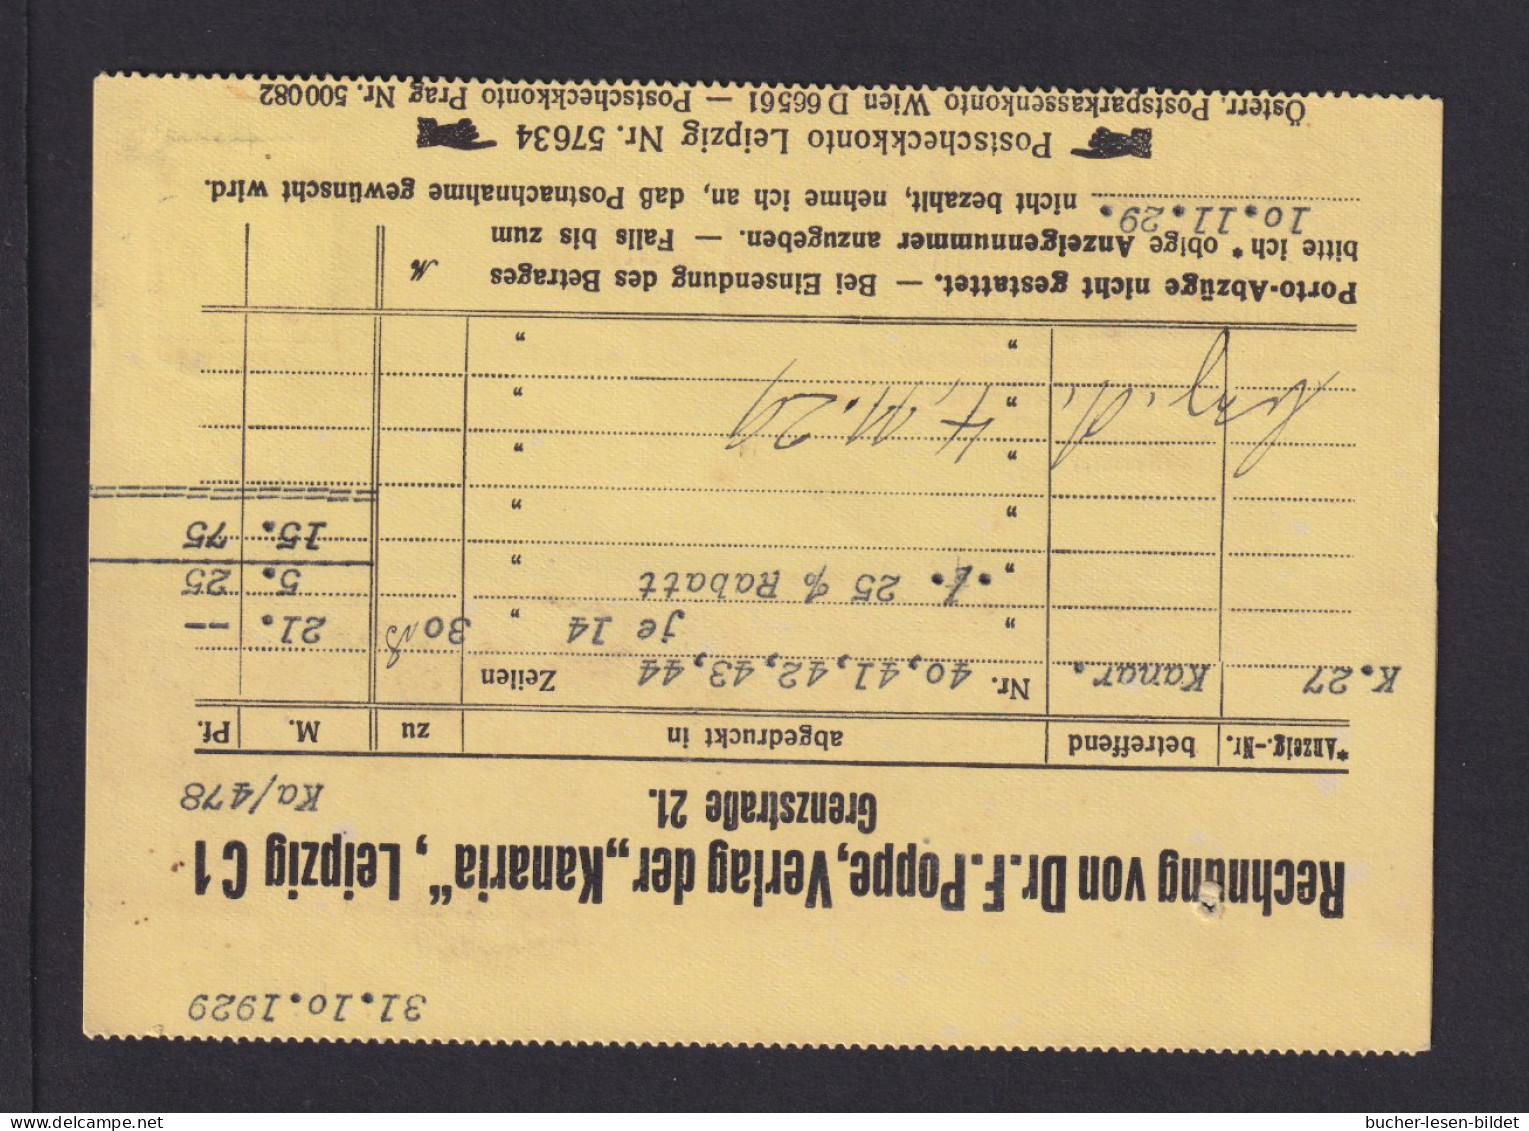 31.10.1929
Rechnung von Dr. F. Poppe, Verlag der „Kanaria“, Leipzig C 1
Grenzstraße 21.
Ka/478
*Anzeig.-Nr. betreffend abgedruckt in zu M. Pf.
K.27 Kanar. Nr. 40,41,42,43,44 Zeilen
" je 14 " 30 21. --
" ./. 25 % Rabatt " 5. 25
" " 15. 75
" "
" 4. "
" "
Porto-Abzüge nicht gestattet. — Bei Einsendung des Betrages
bitte ich * obige Anzeigennummer anzugeben. — Falls bis zum
10.11.29. nicht bezahlt, nehme ich an, daß Postnachnahme gewünscht wird.
Postscheckkonto Leipzig Nr. 57634
Österr. Postsparkassenkonto Wien D 66561 — Postscheckkonto Prag Nr. 500082
bucher-lesen-bildet